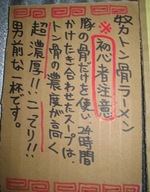 努カン骨ラーメン
※初心者注意
豚の骨だけを使い24時間
かけたき合わせたスープは
トン骨の濃度が高く
超濃厚!!こってり!!
男前な一杯です。